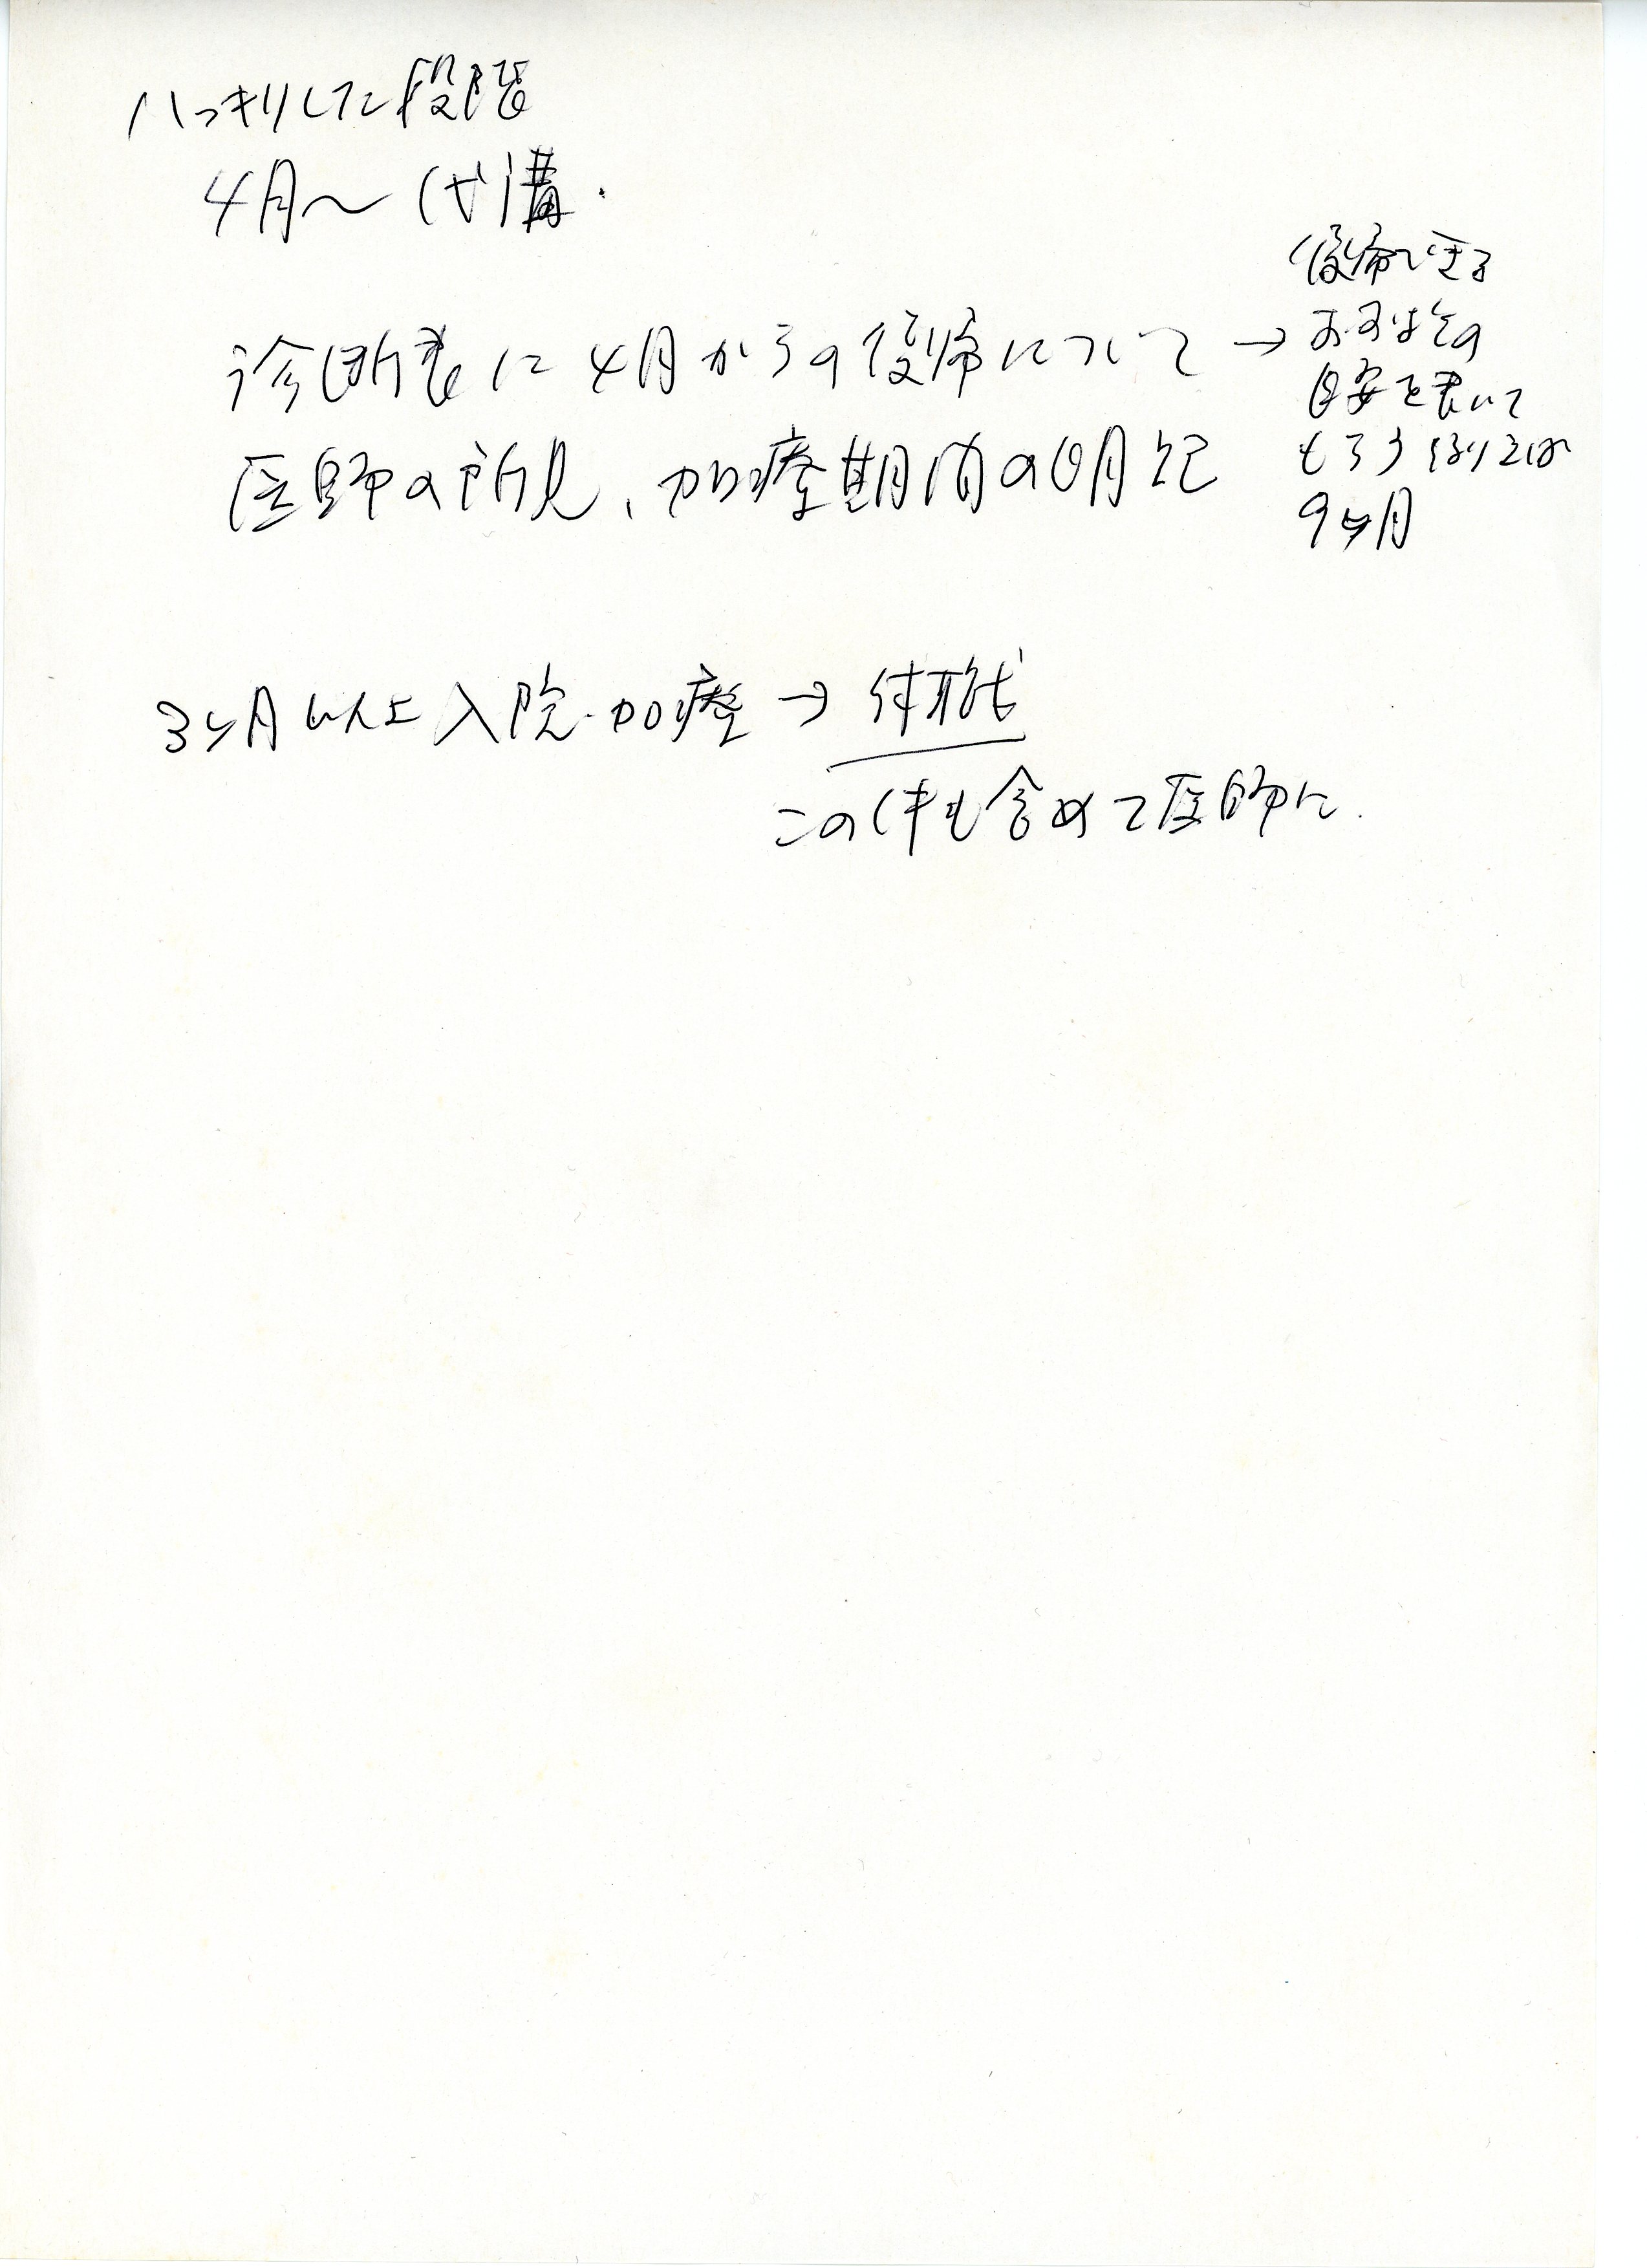 ハッキリした段階
4月〜代講.
診断書に4月からの復帰について→
医師の所見、加療期間の明記
復帰できる
おおよその
目安を書いて
もらう
9ヶ月
3ヶ月以上入院・加療→休職
この件も含めて医師に.